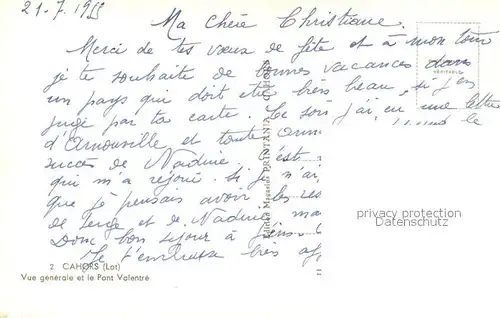 21-7.1955
Ma chère Christiane.
Merci de tes vœux de fête et à mon tour
je te souhaite de bonnes vacances dans
un pays qui doit être très beau, si j'en
juge par ta carte. Ce soir j'ai eu une lettre
d'Arnouville et toute le
succès de Nadine. c'est
qui m'a réjoui. Si je n'ai
que je pensais avoir les res
de Serge et de Nadine, ma
Donc bon séjour à
Je t'embrasse très af
VERITABLE
Edition Magasins PRINTANIA CAHORS
privacy protection
Datenschutz
2 CAHORS (Lot)
Vue générale et le Pont Valentré